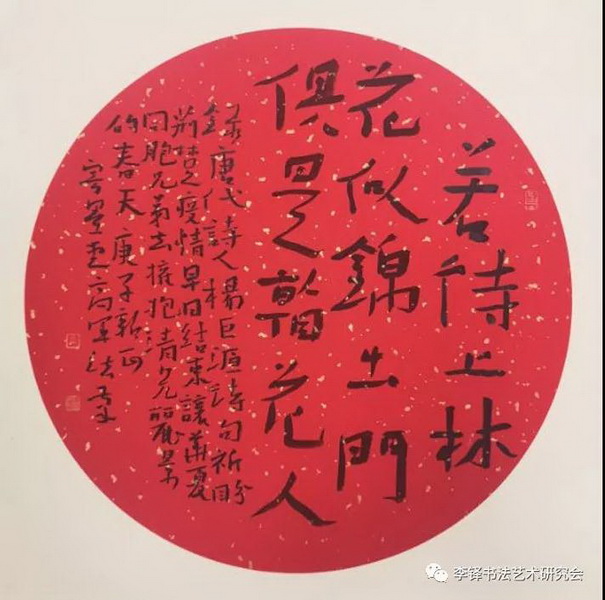 若待上林
花似錦出門
俱是看花人
録唐代詩人楊巨源詩句祈盼
荆楚疫情早日結束讓華夏
同胞兄弟去擁抱清光麗景
的春天庚子新正
高軍法
李铎书法艺术研究会